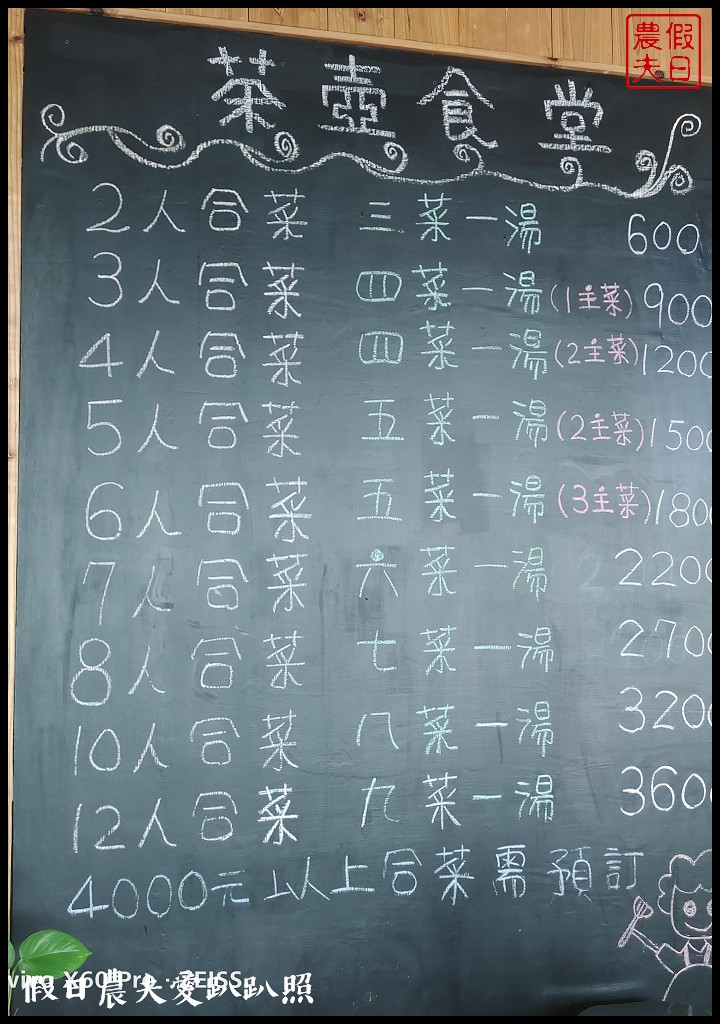 假日農夫
茶壺食堂
2人合菜 三菜一湯 600
3人合菜 四菜一湯(1主菜) 900
4人合菜 四菜一湯(2主菜) 1200
5人合菜 五菜一湯(2主菜) 1500
6人合菜 五菜一湯(3主菜) 1800
7人合菜 六菜一湯 2200
8人合菜 七菜一湯 2700
10人合菜 八菜一湯 3200
12人合菜 九菜一湯 3600
4000元以上合菜需預訂
vivo X60 Pro · ZEISS
假日農夫愛趴趴照